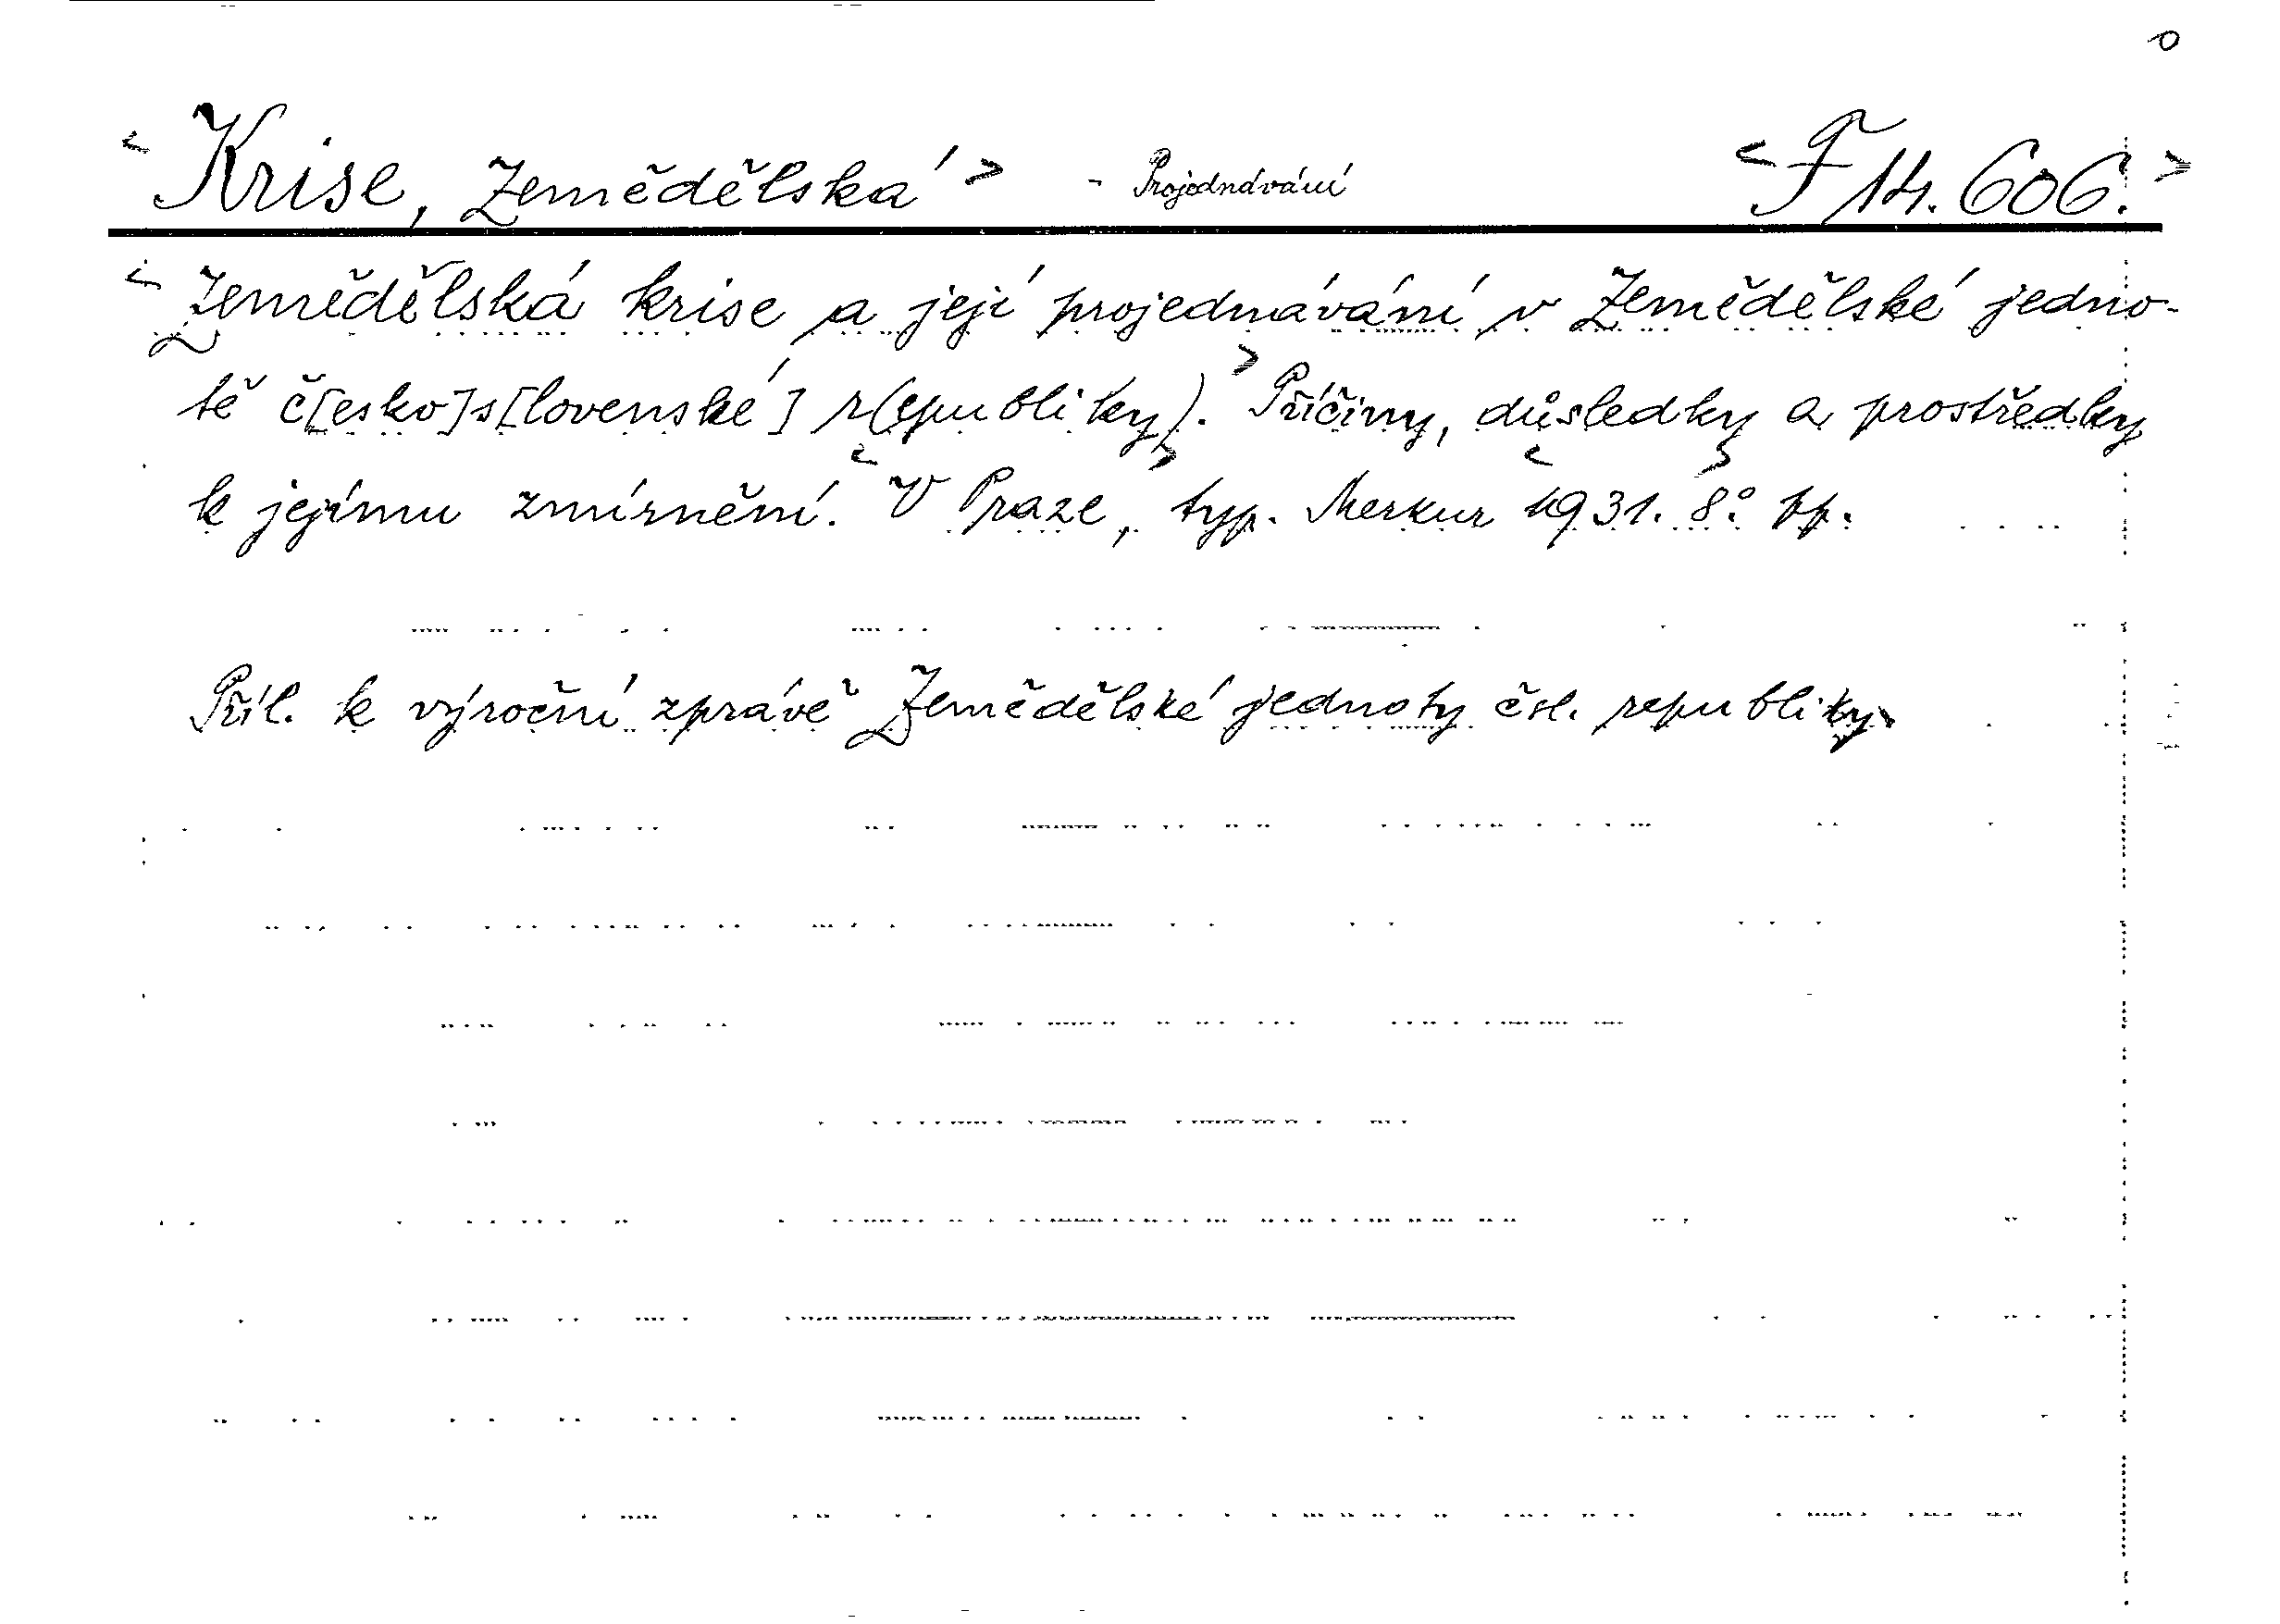 <Krise, Zemědělská> - Projednávání <F 14.606.>
<Zemědělská krise a její projednávání v Zemědělské jedno-
tě č[esko]s[lovenské] r(epubliky).> Příčiny, důsledky a prostředky
k jejímu zmírnění. <V Praze,> typ. Merkur <1931.> 8°.
Příl. k výroční zprávě Zemědělské jednoty čsl. republiky.